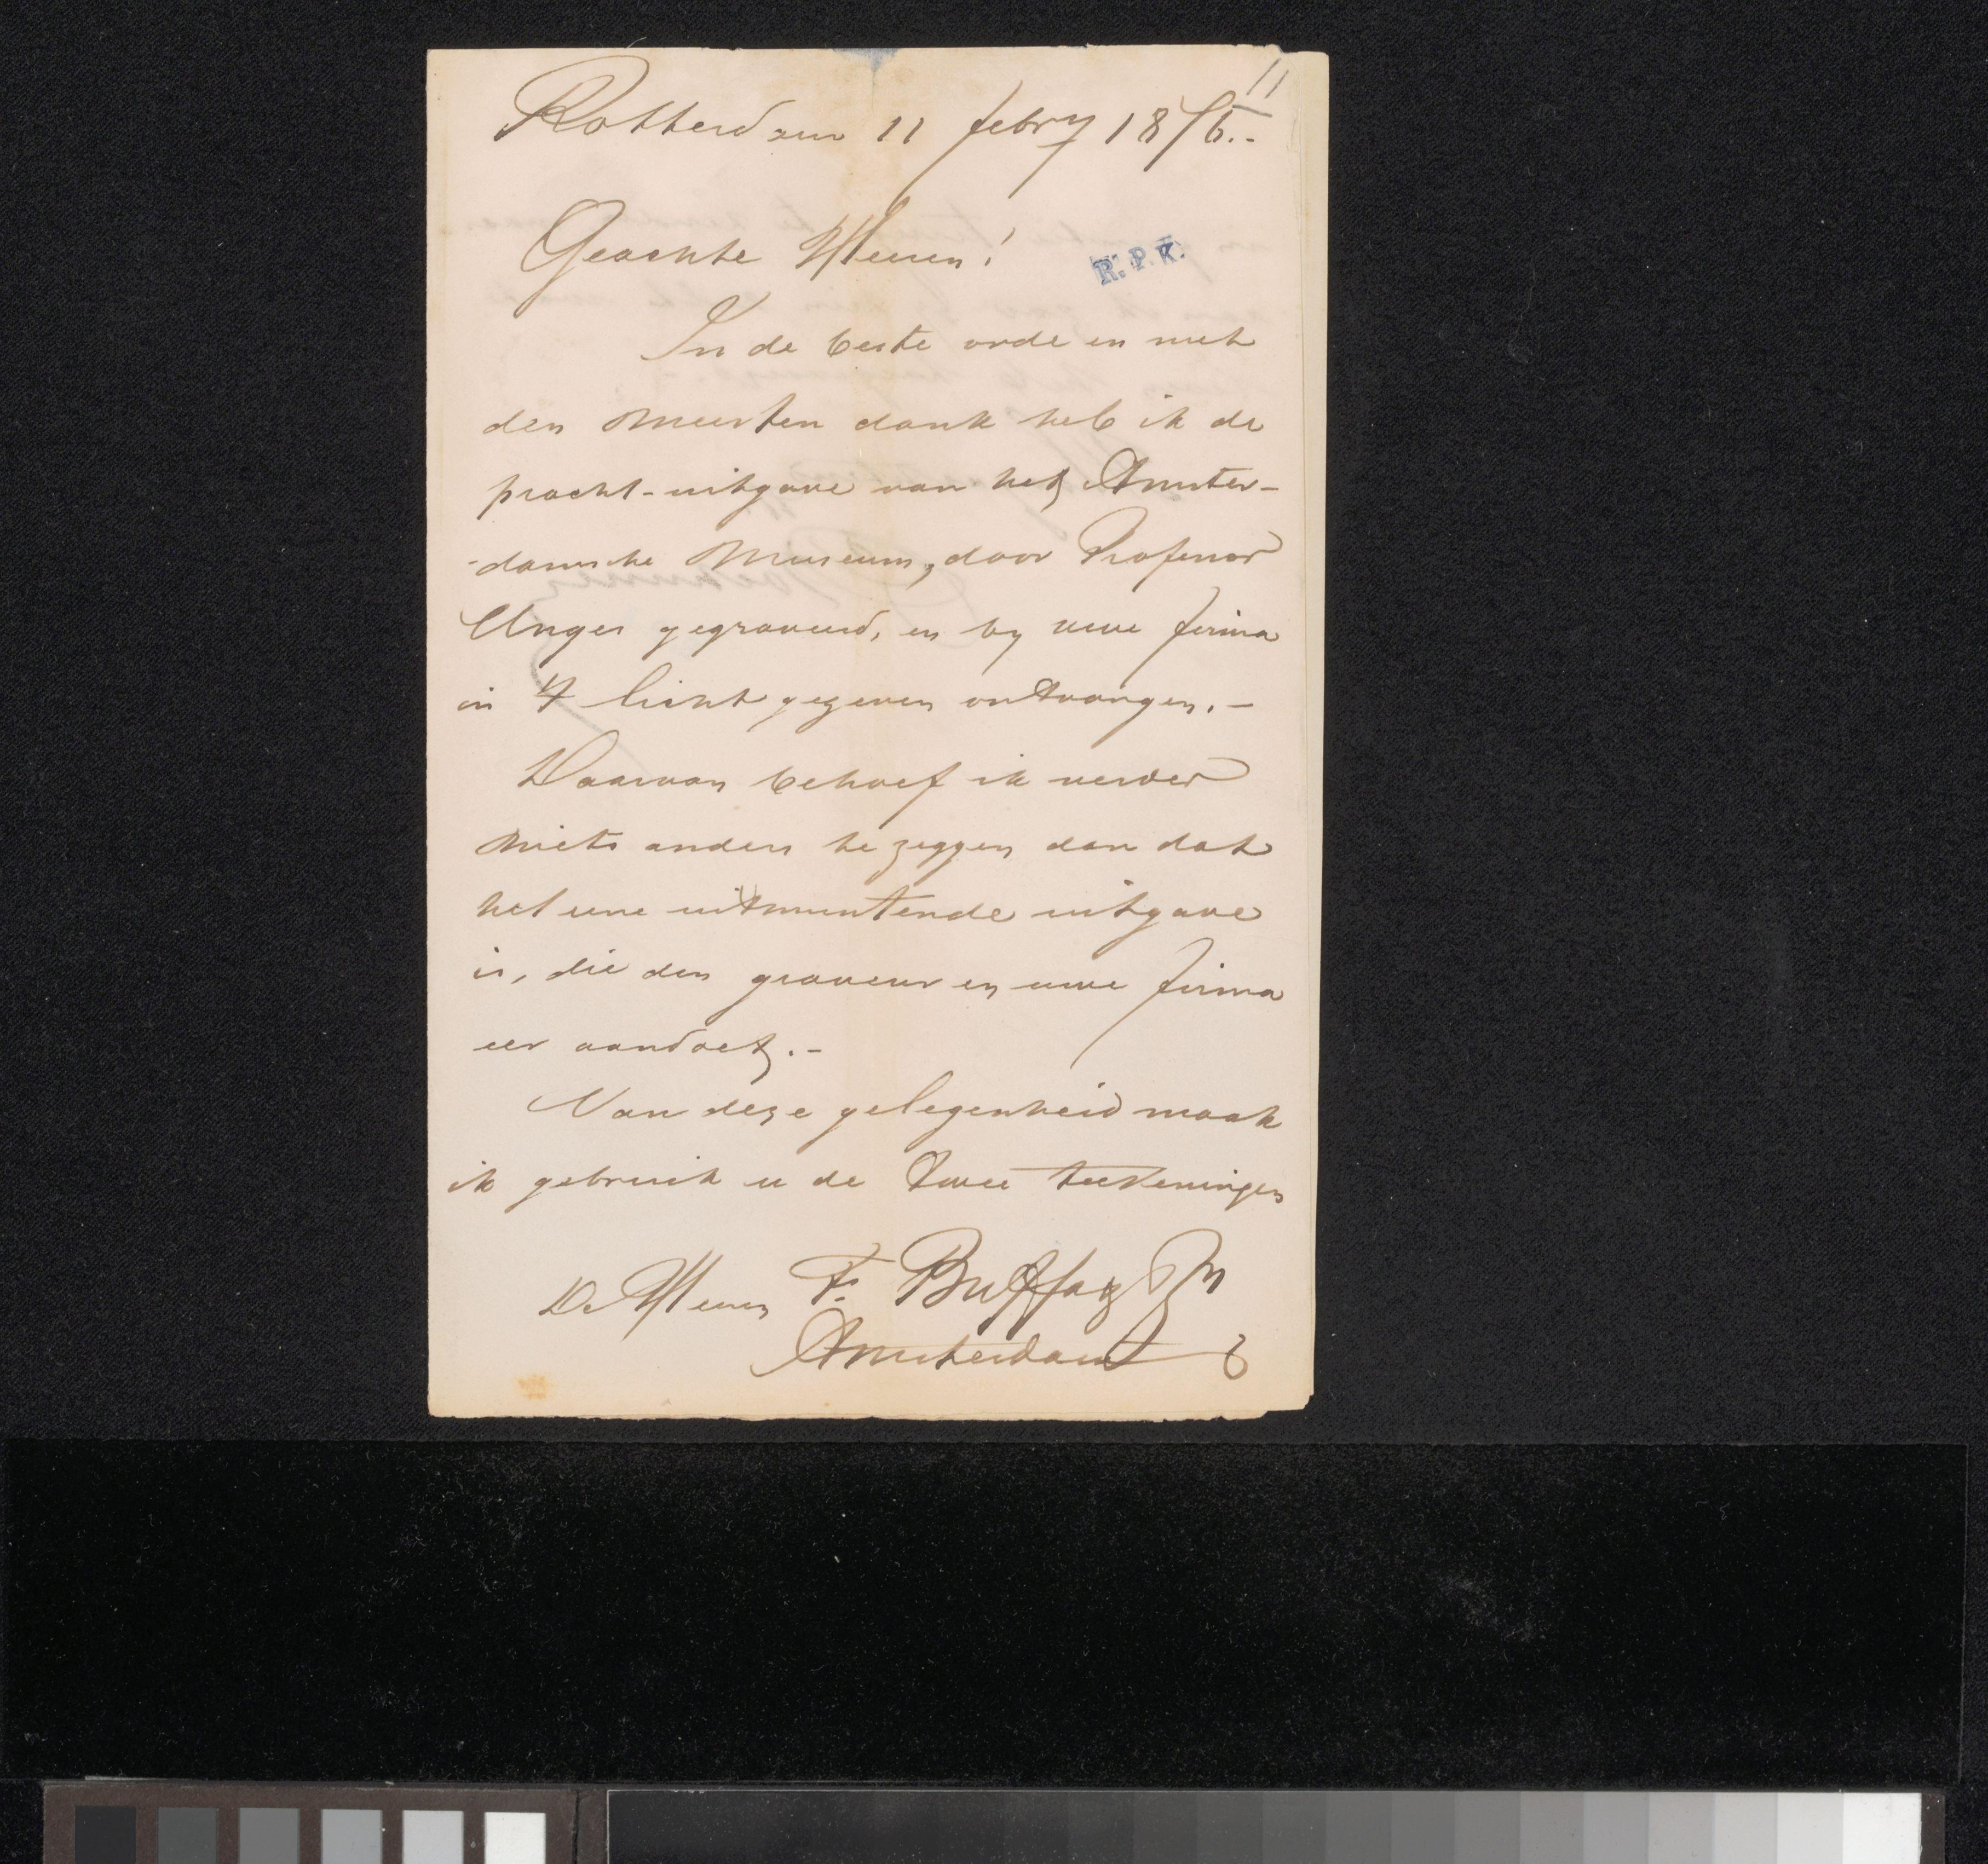 11
Rotterdam 11 febry 1876.-
Geachte Heeren!
R.P.K.
In de beste orde en met
den meesten dank heb ik de
pracht-uitgave van het Amster-
-damsche Museum, door Professor
Unger gegraveerd, en by uwe firma
in 't licht gegeven ontvangen.-
Daarvan behoef ik verder
niets anders te zeggen dan dat
het eene uitmuntende uitgave
is, die den graveur en uwe firma
eer aandoet.-
Van deze gelegenheid maak
ik gebruik u de twee teekeningen
De Heeren F. Buffa & Zn
Amsterdam